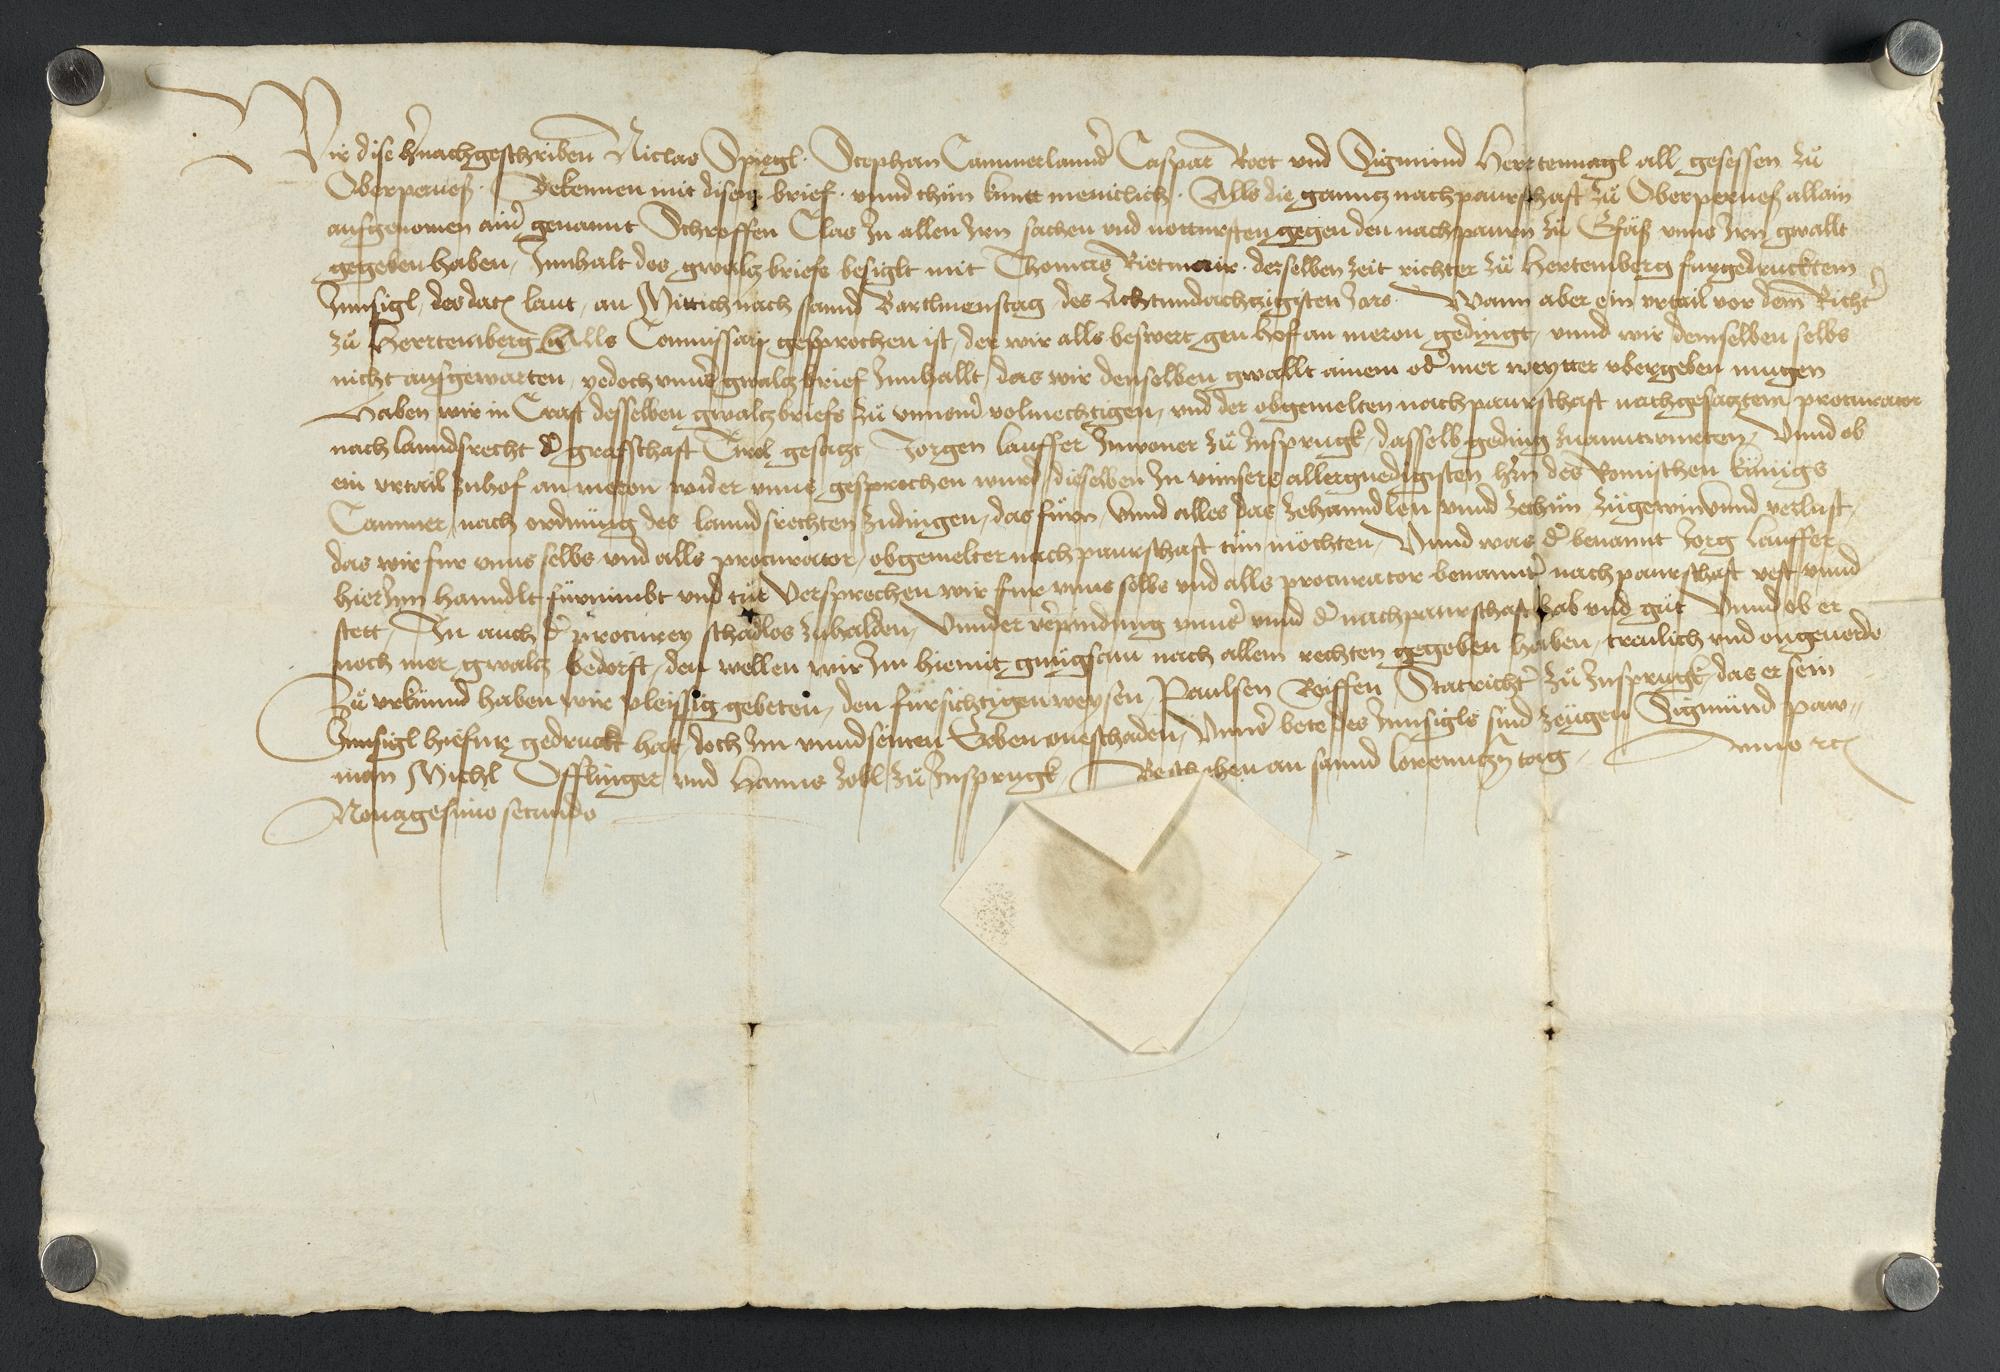 Wir dise hernachgeschriben Niclas Spiegl. Stephan Cammerlannder Caspar Roet vnd Sigmund Herrtennagl all gesessen zu
Oberperuess. Bekennen mit disem brief. vnnd thun kuntt meniclich. Alls die ganntz nachpaurschaft zu Oberperuess allain
ausgenomen ainer genannt Schroffen Clas In allen Irn sachen vnd notturften gegen den nachpaurn zu vnns Irn gwallt
gegeben haben, Innhalt des gwaltzbriefs besiglt mit Thomas Rietmair. derselben zeit richter zu Hertemberg furgedrucktem
Innsigl, des datz laut, an Mittich nach sannd Bartlmeustag des Achtundachtzigisten Jars. Wann aber ein vrtail vor dem Richter
zu Herrtemberg Alls Commissari gesprochen ist, der wir alls beswert gen hof an meron gedingt, vnnd wir demselben selbs
nicht ausgewarten, yedoch vnnser gwaltzbrief Innhallt, das wir denselben gwallt ainem oder mer weytter vbergeben mugen
Haben wir in Craft desselben gwaltzbriefs zu vnnserm volmechtigen, vnd der obgemelten nachpaurschaft nachgesatztem procurator
nach lanndsrecht der grafschaft Tirol gesatzt Jorgen lauffer Inwoner zu Insprugk, dasselb geding zuanntwurten, Vnnd ob
ein vrtail zuhof an meron wider vnns gesprochen wurd, dieselben In vnnsers allergnedigisten hern des Romischen kunigs
Cammer, nach ordnung des lanndsrechten zudingen, das furn, Vnnd alles das zehanndlen vnnd zethun zugewin vnnd verlust,
das wir fur vnns selbs vnd alls procurator, obgemelter nachpaurschaft tun möchten, Vnnd was der benannt Jorg lauffer
hierInn hanndlt fürnimbt vnd tut Versprechen wir fur vnns selbs vnd alls procurator benannter nachpaurschaft vest vnnd
stett, In auch der procurey schadlos zuhalden, Vnnder verpindung vnnser vnnd der nachpaurschaft hab vnd gut Vnnd ob er
noch mer gwaltz bedorft, den wellen wir Im hiemit gnugsam nach allem rechten gegeben haben, treulich vnd ongeuerde
Zu vrkunnd haben wir vleissig gebeten, den fursichtigen weysen, Paulsen Reiffen Statrichter zu Insprugk, das er sein
Innsigl hiefur gedruckt hat, doch Im vnnd seinen Erben oneschaden, Vnnser bete des Innsigls sind zeugen Sigmund paw-
man Michl Offlinger vnd Hanns zoll zu Insprugk, Beschehen an sannd lorenntzn tag, Anno rc
Nonagesimo secundo